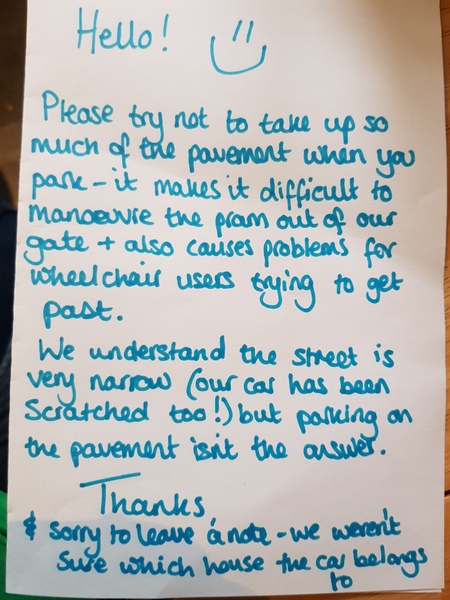 Hello!
Please try not to take up so
much of the pavement when you
park - it makes it difficult to
manoeuvre the pram out of our
gate + also causes problems for
wheelchair users trying to get
past.
We understand the street is
very narrow (our car has been
scratched too!) but parking on
the pavement isn't the answer.
Thanks
& sorry to leave a note - we weren't
sure which house the car belongs
to